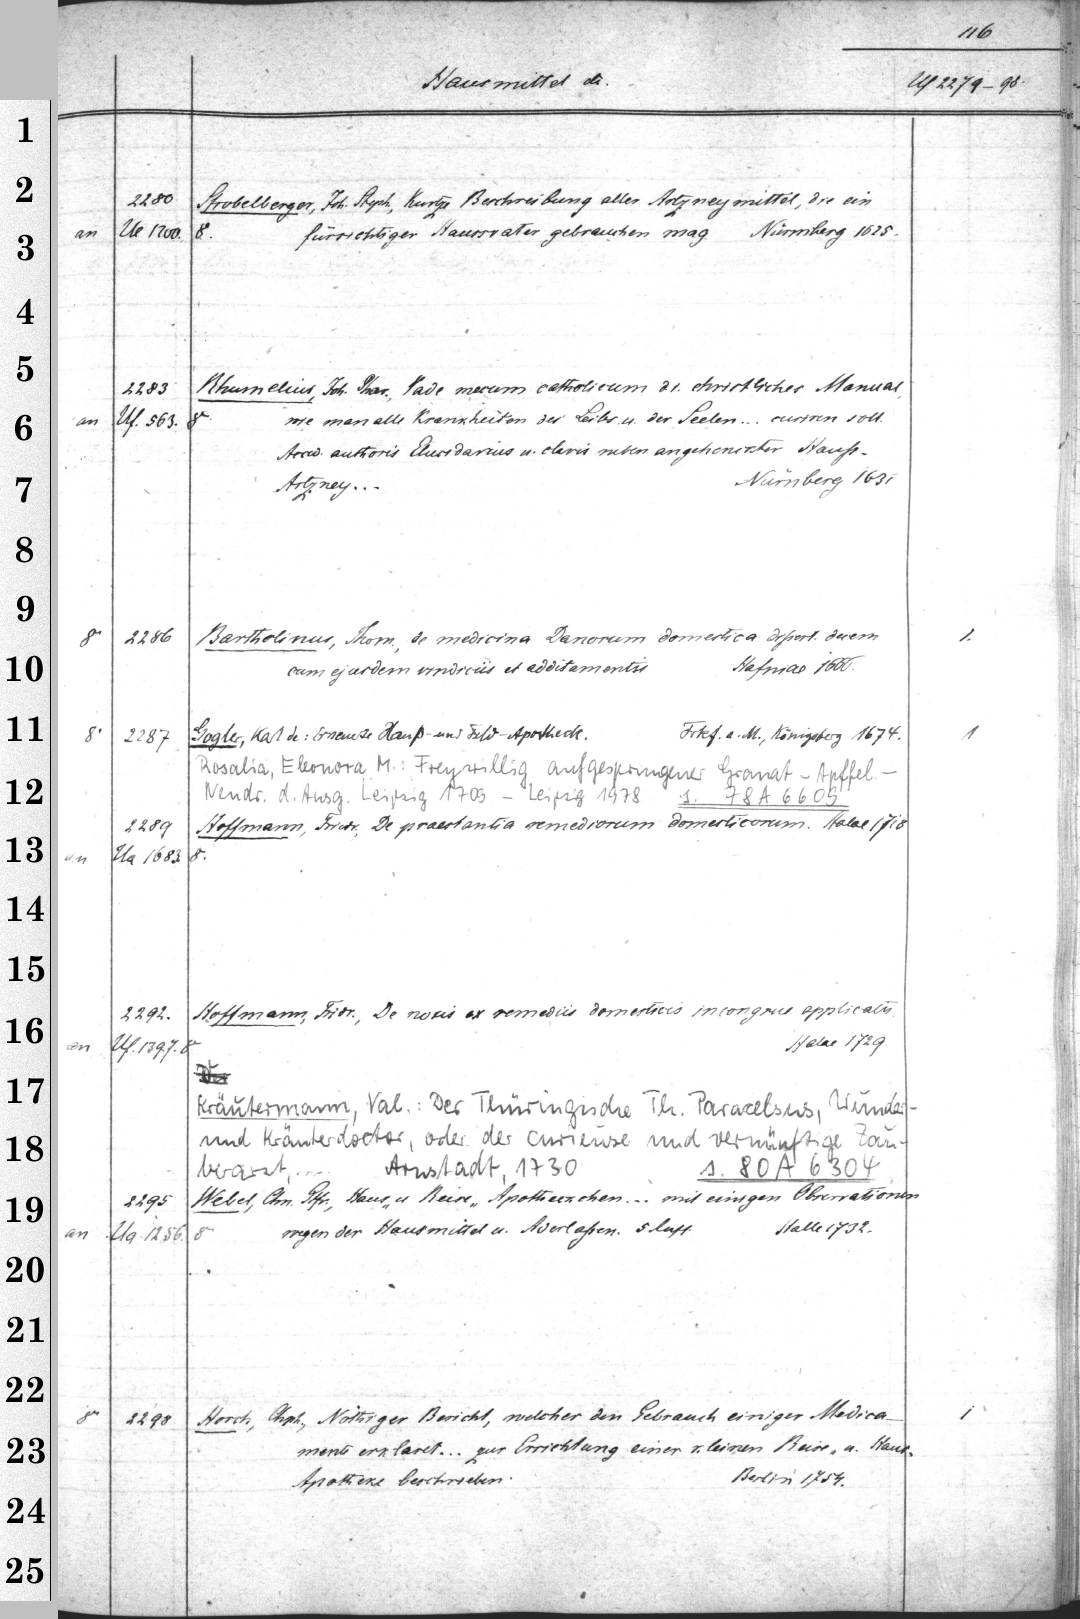 116
Hausmittel di. Uf 2279-98.
1
2
2280 Strobelberger, Joh. Steph., Kurtze Beschreibung aller Artzneymittel, die ein
an Ue 1200. 8. fürsichtiger Haussvater gebrauchen mag Nürnberg 1625.
3
4
5
2283 Rhumelius, Joh. Phar., Vade mecum catholicum d.i. christliches Manual,
6
an Uf. 563. 8 wie man alle Krankheiten des Leibs u. der Seelen... curiren soll.
authoris Elucidarius u. clavis neben angehenckter Hauss-
7
Artzney... Nürnberg 1631
8
9
8° 2286 Bartholinus, Thom., de medicina Danorum domestica dissert. decem 1.
10
cum ejusdem vindiciis et additamentis Hafniae 1666.
11
8° 2287 Gogler, Kat de: Erneuete Hauß- und Feld-Apotheck. Frkf. a. M., Königsberg 1674. 1
Rosalia, Eleonora M.: Freywillig aufgesprungener Granat-Apffel. -
12
Neudr. d. Ausg. Leipzig 1709 - Leipzig 1978 s. 78 A 6605
2289 Hoffmann, Fridr., De praestantia remediorum domesticorum. Halae 1718
13
an Ua 1683 8.
14
15
2292. Hoffmann, Fridr., De noxis ex remediis domesticis incongrue applicatis
16
an Uf. 1397. 8° Halae 1729
17
Kräutermann, Val.: Der Thüringische Th. Paracelsus, Wunder-
18
und Kräuterdoctor, oder der curieuse und vernünftige Zau-
berarzt,... Arnstadt, 1730 s. 80 A 6304
19
2295 Webel, Chn. Gfr., Haus- u. Reise-Apotheckchen... mit einigen Observationen
an Ua 1256. 8 wegen der Hausmittel u. Aderlassen. 5 Aufl Halle 1732.
20
21
22
8° 2298 Horch, Chph., Nöthiger Bericht, welcher den Gebrauch einiger Medica- 1
23
mente erklaert... zur Errichtung einer kleinen Reise- u. Haus-
Apotheke beschrieben. Berlin 1754.
24
25